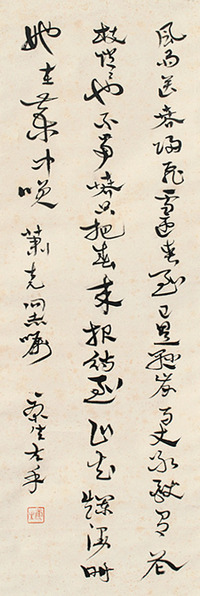 風雨送春歸飛雪迎春到已是懸崖百丈冰猶有花
枝俏俏也不爭春只把春來報待到山花爛漫時
她在叢中笑 蕭克同志囑 左手